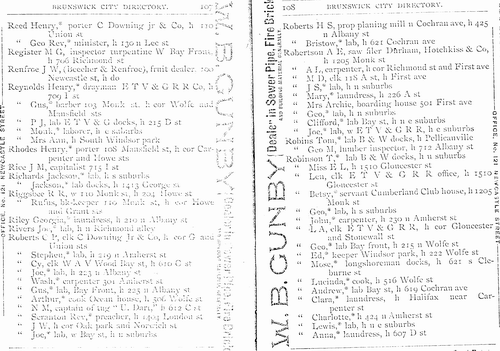 BRUNSWICK CITY DIRECTORY. 107
Reed Henry,* porter C Downing jr & Co, h 110
Union st
" Geo Rev,* minister, h 130 n Lee st
Register M G, inspector turpentine W Bay Front,
h 706 Richmond st
Renfroe J W, (Beecher & Renfroe), fruit dealer, 200
Newcastle st, h do
Reynolds Henry,* drayman E T V & G R R Co, h
709 I st
" Gus,* barber 103 Monk st, h cor Wolfe and
Mansfield sts
" P J, lab E T V & G docks, h 215 D st
" Monk,* laborer, h e suburbs
" Mrs Ann, h South Windsor park
Rhodes Henry,* porter 108 Mansfield st, h cor Car-
penter and Howe sts
Rice J M, capitalist 715 I st
Richards Jackson,* lab, h s suburbs
" Jackson,* lab docks, h 1413 George st
Riggsbee R R, w 110 Monk st, h 201 Howe st
" Rufus, bk-keeper 110 Monk st, h cor Howe
and Grant sts
Riley Georgia,* laundress, h 210 n Albany st
Rivers Joe,* lab, h n Richmond alley
Roberts C P, clk C Downing Jr & Co, h cor G and
Union sts
" Stephen,* lab, h 219 n Amherst st
" Cy, clk W A V Wood Bay st, h 610 G st
" Joe,* lab, h 223 n Albany st
" Wash,* carpenter 301 Amherst st
" Gus,* lab, Bay Front, h 225 n Albany st
" Arthur,* cook Ocean house, h 306 Wolfe st
" N M, captain of tug "U. Dart," h 612 C st
" Scranton Rev,* preacher, h 1404 London st
" J W, h cor Oak park and Norwich st
" Joe,* lab, w Bay st, h n e suburbs
W. B. GUNBY
OFFICE No. 121 NEWCASTLE STREET
108 BRUNSWICK CITY DIRECTORY.
Roberts H S, prop planing mill n Cochran ave, h 425
n Albany st
" Bristow,* lab, h 621 Cochran ave
Robertson A E, saw filer Durham, Hotchkiss & Co,
h 1205 Monk st
" A L, carpenter, h cor Richmond st and First ave
" M D, clk 118 A st, h First ave
" J S,* lab, h n suburbs
" Mary,* laundress, h 226 A st
" Mrs Archie, boarding house 501 First ave
" Geo,* lab, h n suburbs
" Clifford,* lab Bay st, h n e suburbs
" Joe,* lab, w E T V & G R R, h e suburbs
Robins Tom,* lab B & W docks, h Pellicanville
" Geo M, lumber inspector, h 712 Albany st
Robinson T,* lab B & W docks, h n suburbs
" Miss E L, h 1510 Gloucester st
" Lota, clk E T V & G R R office, h 1510
Gloucester st
" Betsy,* servant Cumberland Club house, h 1205
Monk st
" Geo,* lab, h n suburbs
" John,* carpenter, h 230 n Amherst st
" L A, clk E T V & G R R, h cor Gloucester
and Stonewall st
" Geo,* lab Bay front, h 215 n Wolfe st
" Ed,* keeper Windsor park, h 222 Wolfe st
" Mose,* longshoreman docks, h 621 s Cle-
burne st
" Lucinda,* cook, h 516 Wolfe st
" Andrew,* lab Bay st, h 619 Cochran ave
" Clara,* laundress, h Halifax near Car-
penter st
" Charlotte,* h 424 n Amherst st
" Lewis,* lab, h n e suburbs
" Anna,* laundress, h 607 D st
W. B. GUNBY
Dealer in Sewer Pipe, Fire Brick
OFFICE, No. 121 NEWCASTLE STREET